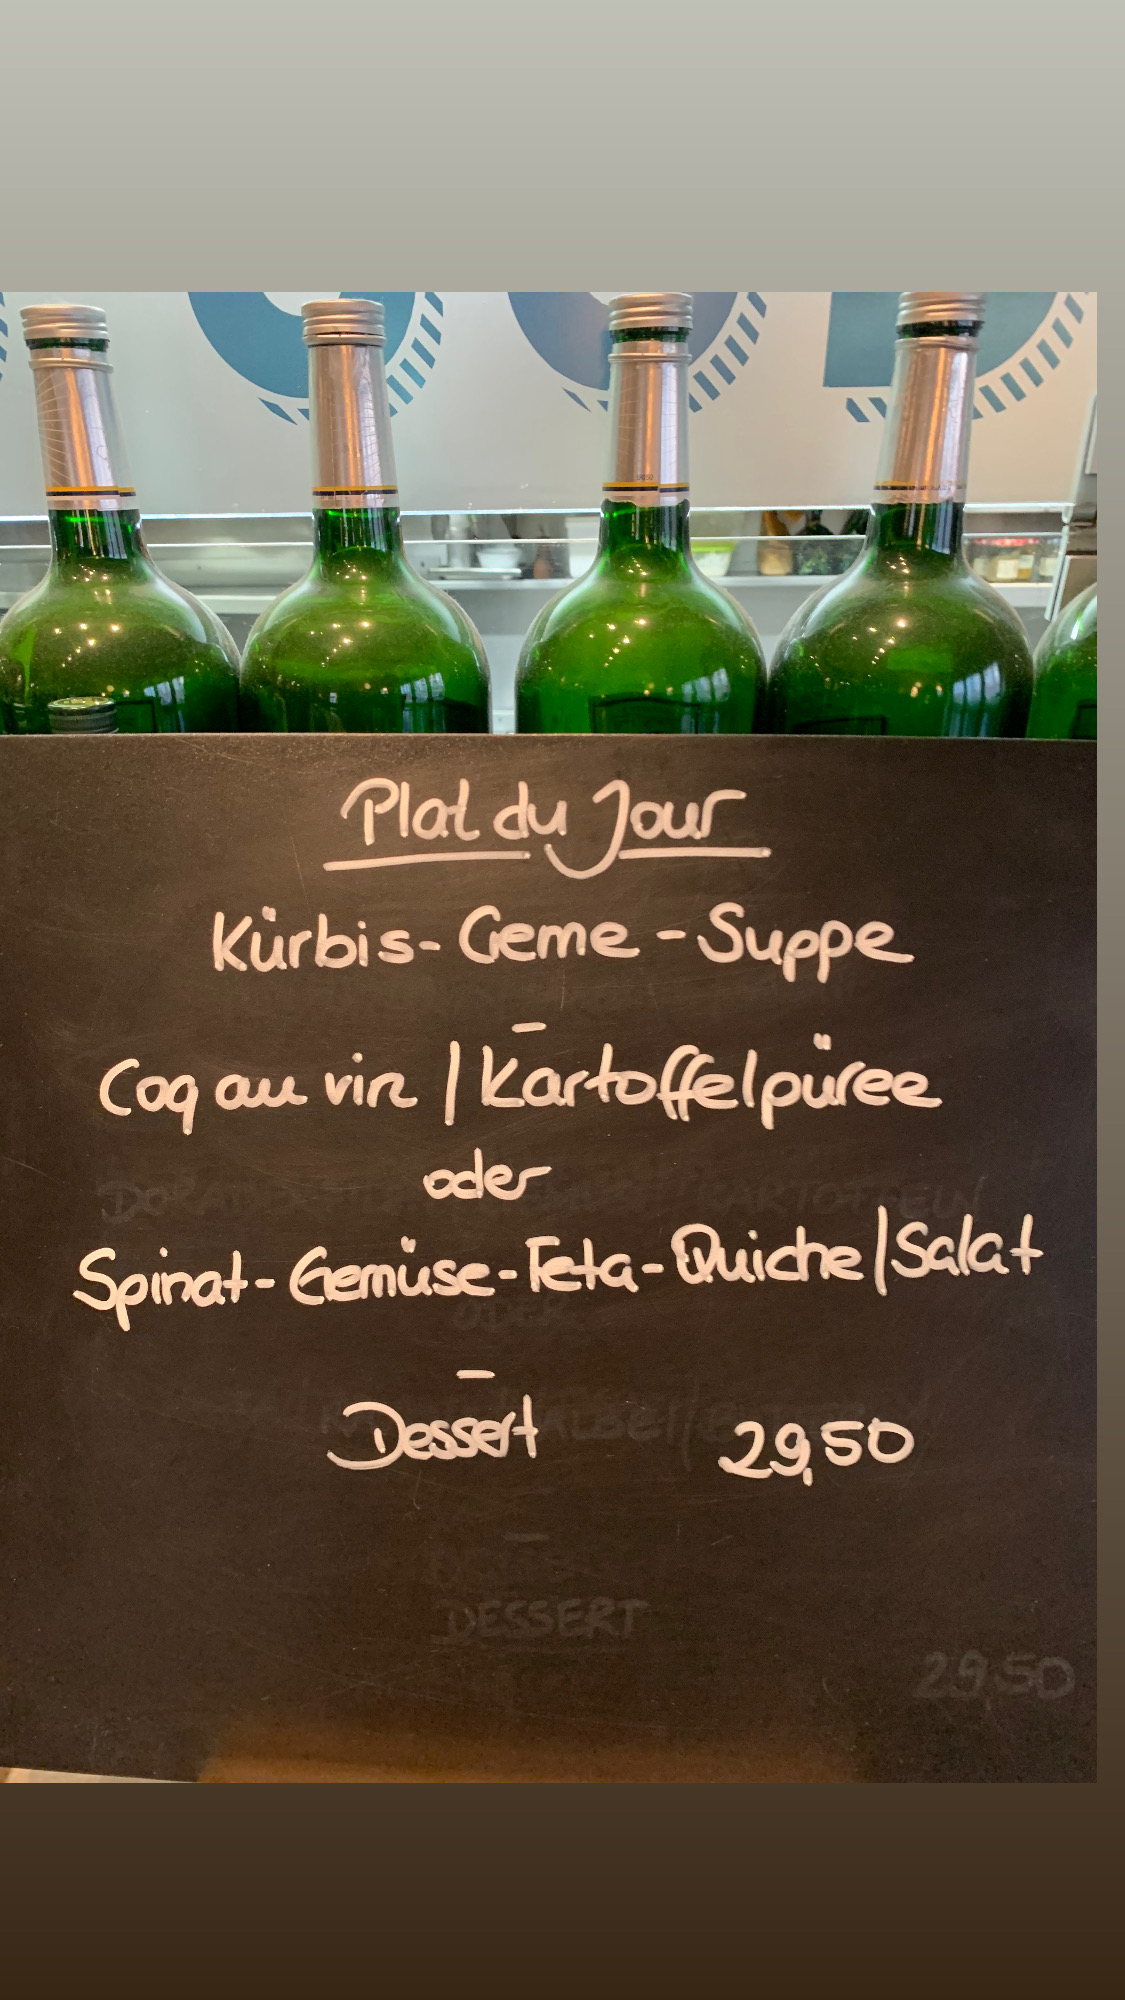 Plat du Jour
Kürbis-Creme-Suppe
-
Coq au vin | Kartoffelpüree
oder
Spinat-Gemüse-Feta-Quiche | Salat
-
Dessert 29,50
DESSERT
29,50